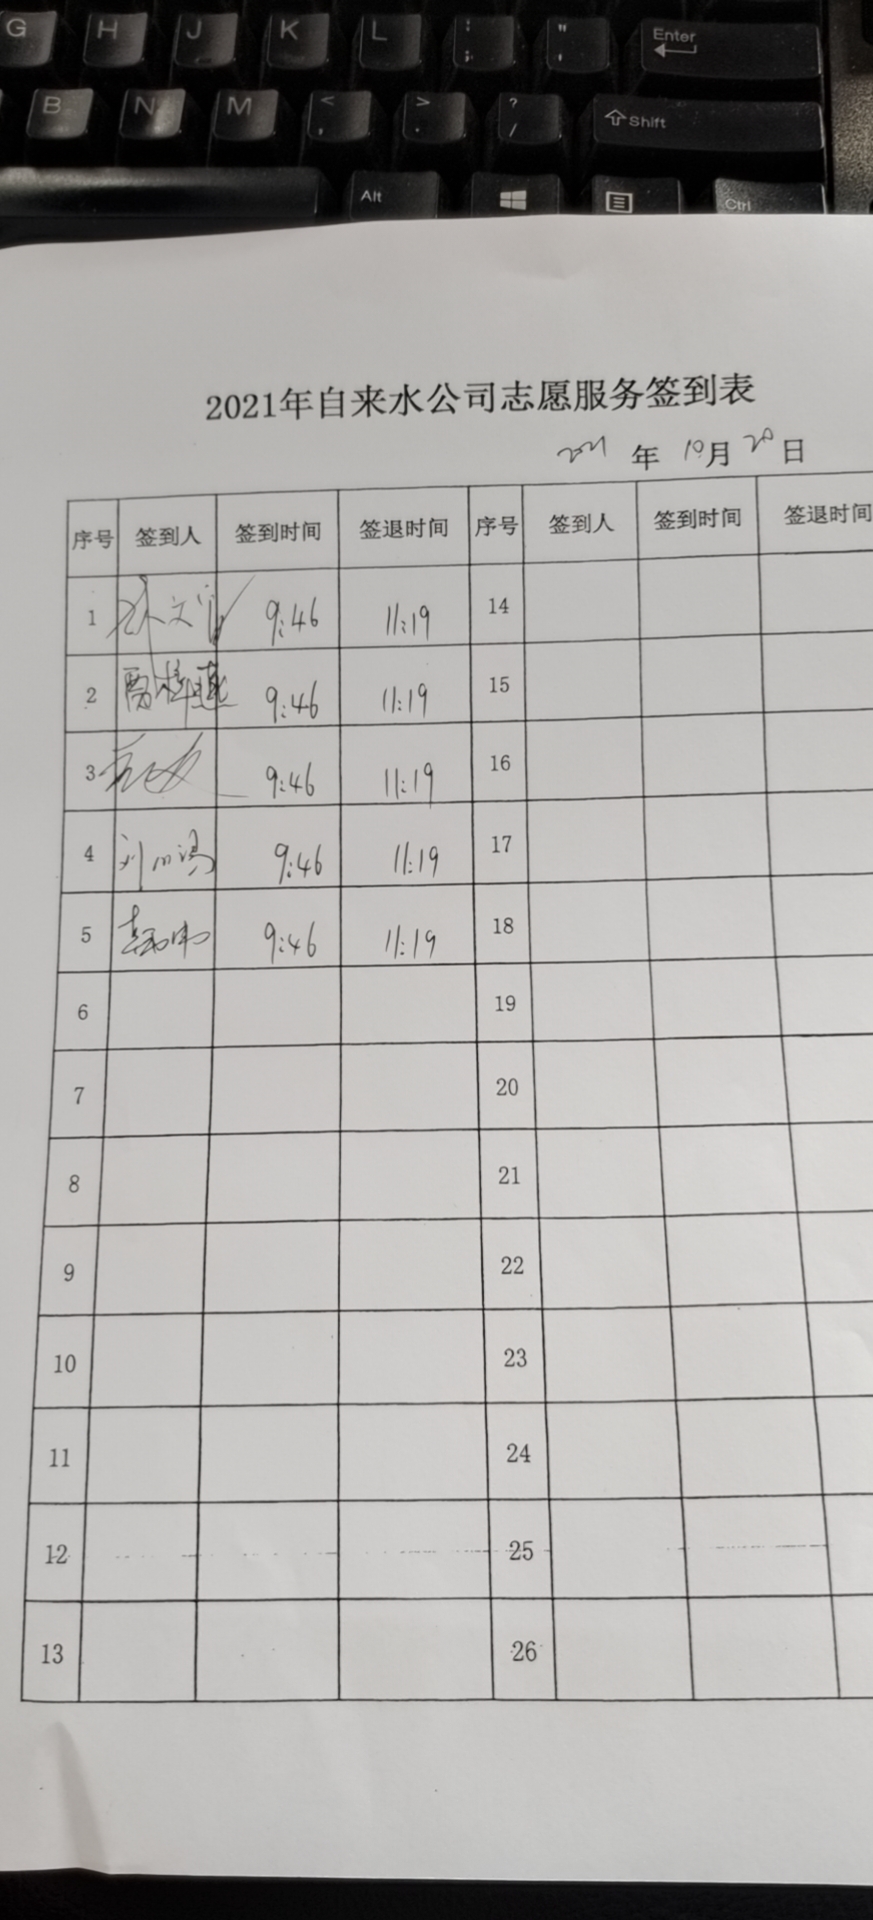 G H J K L : ; " ' Enter
B N M < , > . ? / Shift
Alt Ctrl
2021年自来水公司志愿服务签到表
2021 年 10月 20日
序号 签到人 签到时间 签退时间 序号 签到人 签到时间 签退时间
1 9:46 11:19 14
2 9:46 11:19 15
3 9:46 11:19 16
4 刘 9:46 11:19 17
5 9:46 11:19 18
6 19
7 20
8 21
9 22
10 23
11 24
12 25
13 26